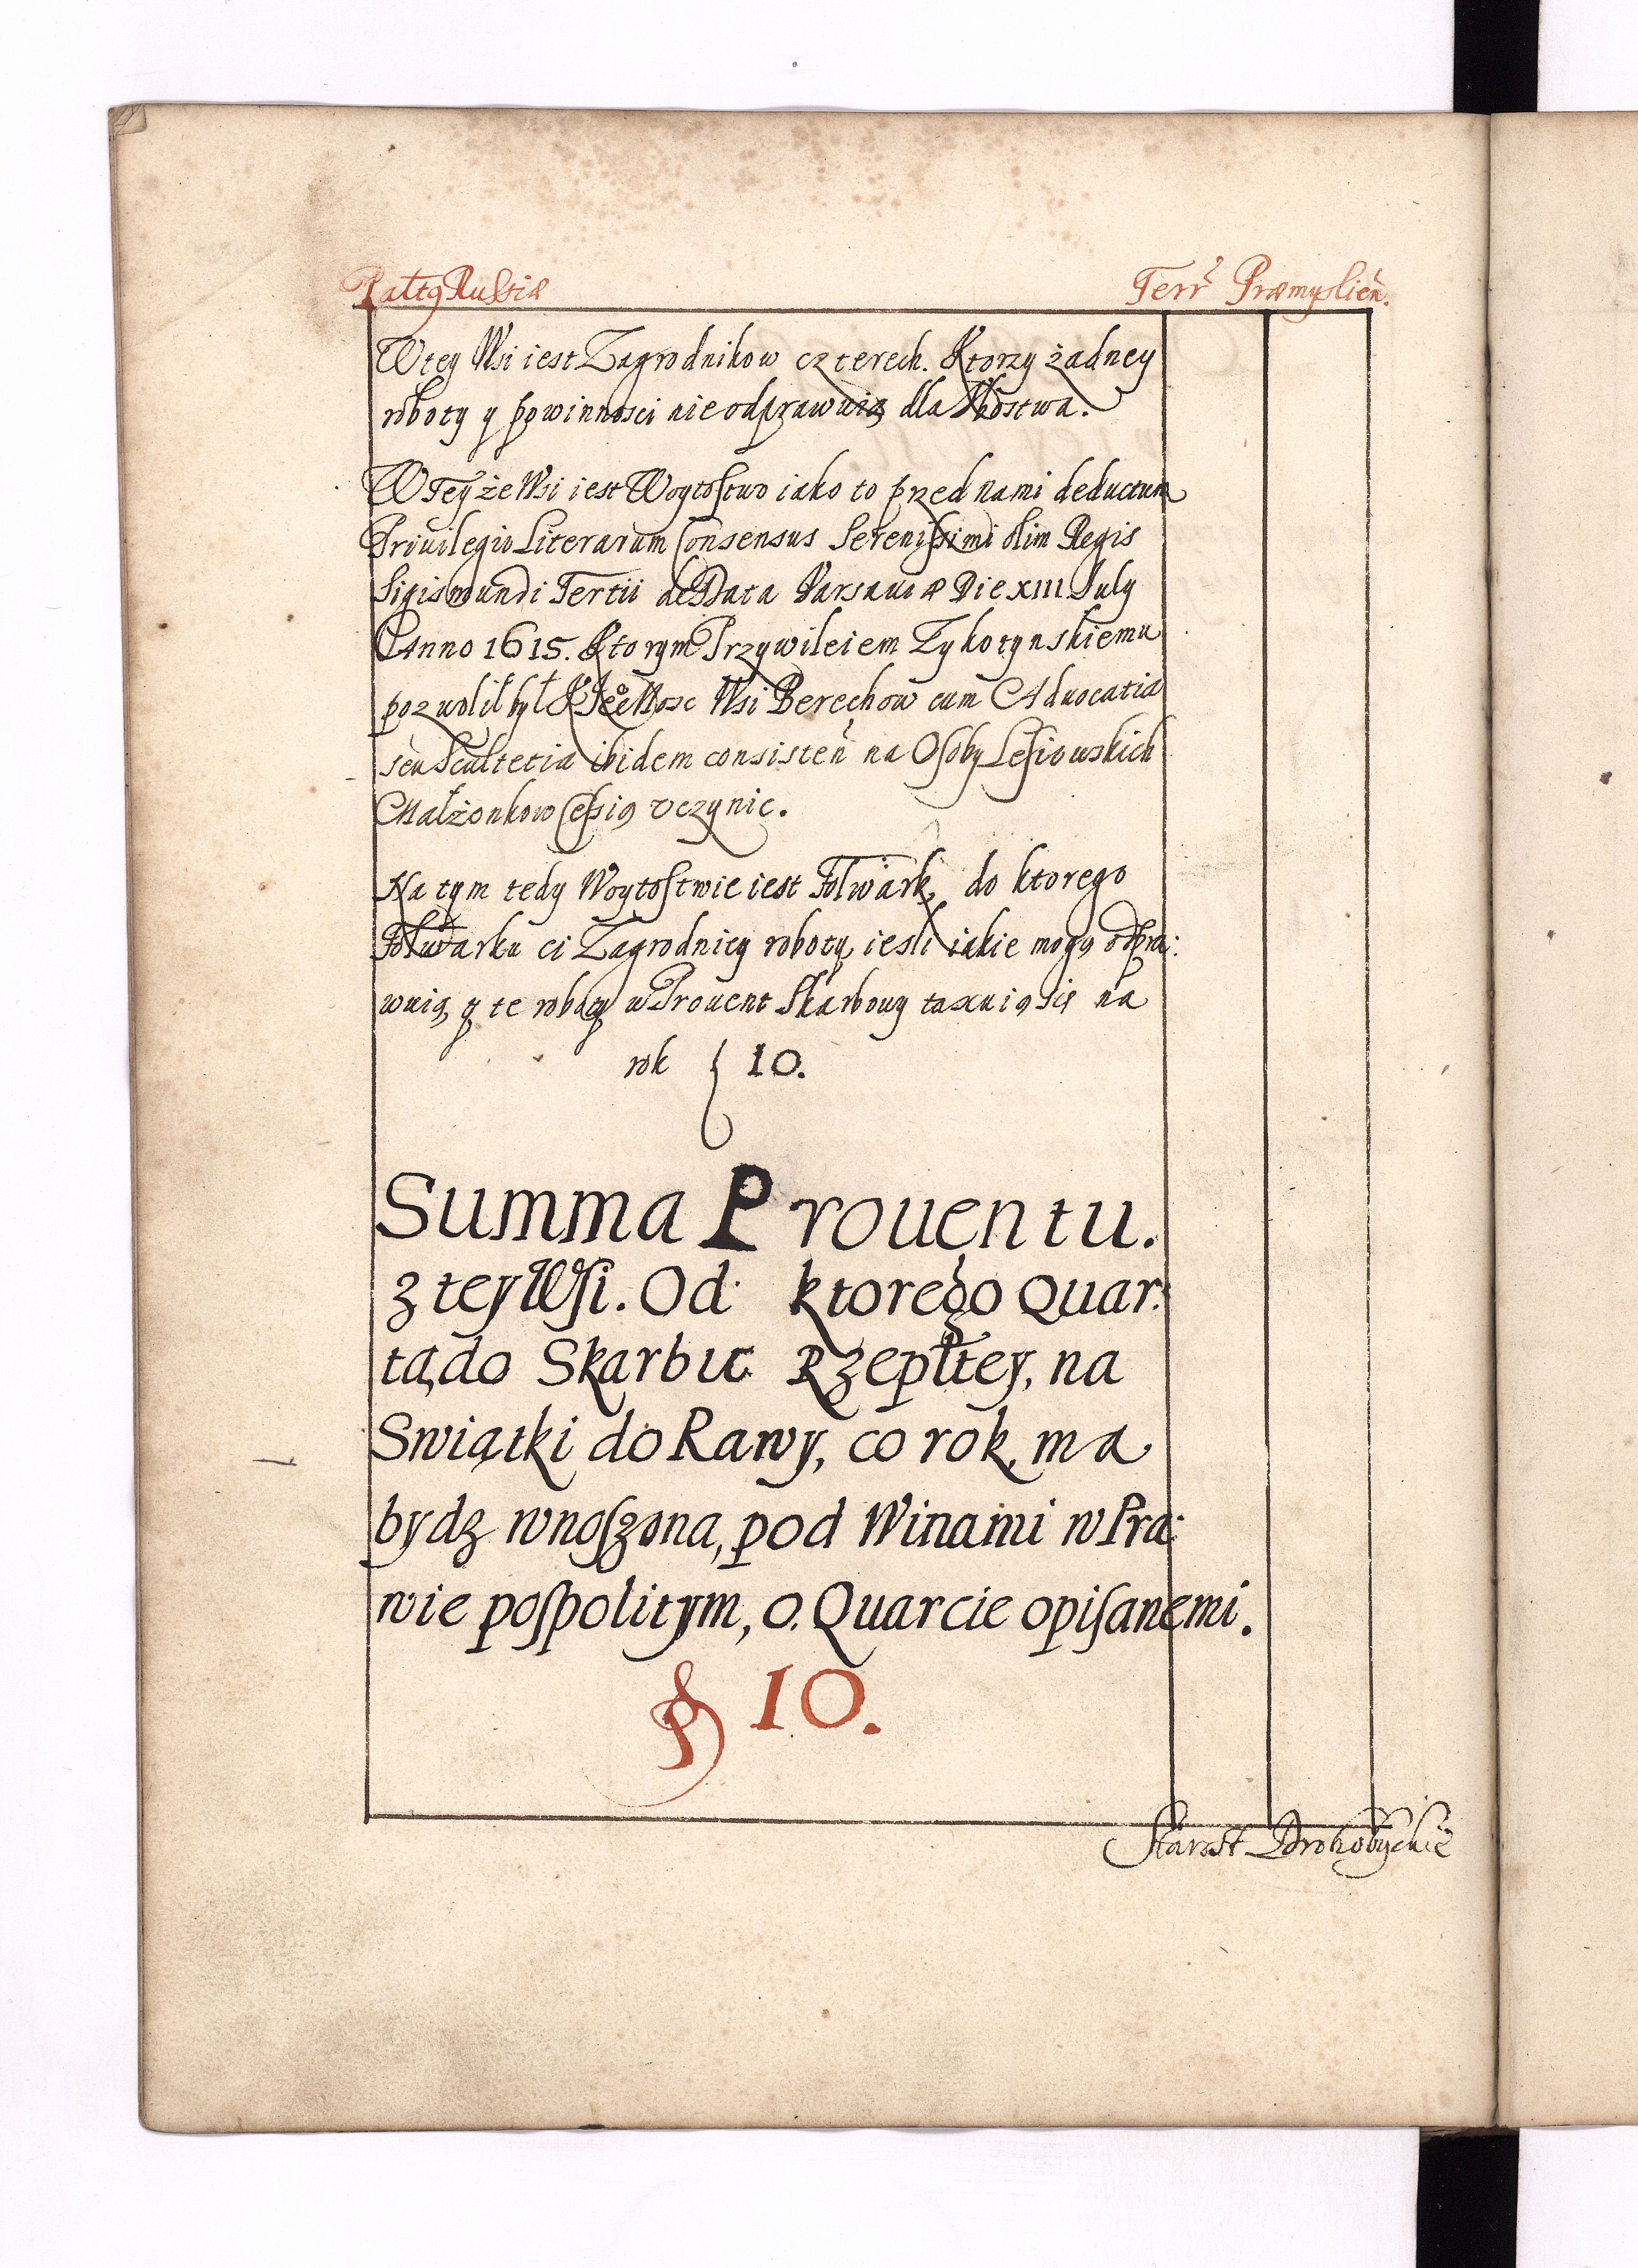 Palt9 Russiæ Terr Præmyslień.
W tey Wsi iest Zagrodnikow czterech. Ktorzy żadney
roboty y powinnosci nie odprawuią dla Vbostwa.
W Teyże Wsi iest Woytostwo iako to przed nami deductum
Priuilegio Literarum Consensus Serenissimi olim Regis
Sigismundi Tertii de Data Varsauiæ Die XIII July
Anno 1615. Ktorym Przywileiem Zykotynskiemu
pozwolił był KJeoMosc Wsi Berechow cum Aduocatia
seu Scultetia ibidem consisteń na Osoby Lesiowskich
Małżonkow Cessią vczynic.
Na tym tedy Woytostwie iest Folwark, do ktorego
Folwarku ci Zagrodnicy roboty, iesli iakie mogą odpra:
wuią, y te roboty w Prouent Skarbowy taxuią się na
rok 10.
Summa Prouentu.
z tey Wsi. Od ktorego Quar:
ta, do Skarbu Rzepltey, na
Swiątki do Rawy, co rok, ma
bydz wnoszona, pod Winami w Pra:
wie pospolitym, o. Quarcie opisanemi.
10.
Starost Drohobyckie